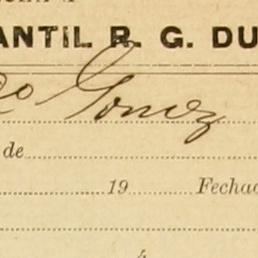 ANTIL R. G. DU
Gomez
de
19 Fecha